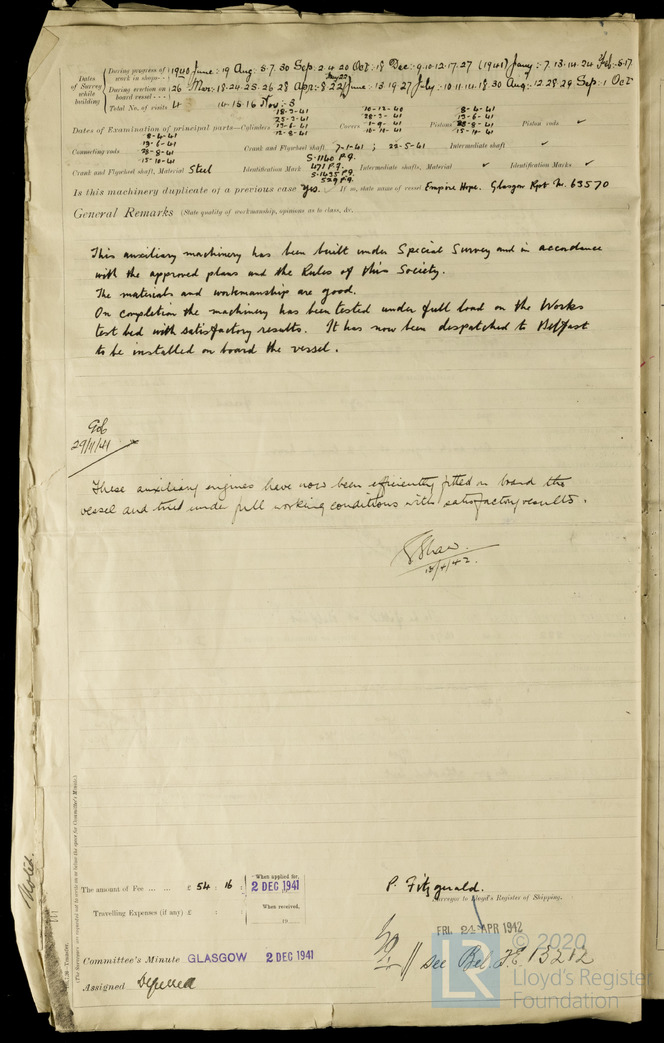 Dates of Survey while building
During progress of work in shops 1940 June: 19 Aug: 5.7.30 Sep: 2.4.20 Oct: 18 Dec: 9.10.12.17.27 (1941) Jany: 7.13.14.24 Feb: 5.17
During erection on board vessel 26 Mar: 18.24.25.26.28 Apr: 8.22 June: 13.19.27 July: 10.11.14.18.30 Aug: 12.28.29 Sep: 1 Oct
Total No. of visits 14.15.16 Nov: 3
Dates of Examination of principal parts—Cylinders Covers 10-12-40 Pistons 8-4-41 Piston rods ✓
Connecting rods 8-4-41 Crank and Flywheel shaft 7-1-41 ; 22-5-41 Intermediate shafts ✓
Crank and Flywheel shaft, Material Steel Identification Mark S.1160 P.G. 471 P.G. Intermediate shafts, Material ✓ Identification Marks ✓
Is this machinery duplicate of a previous case Yes. If so, state name of vessel Empire Hope. Glasgow Rpt No. 63570
General Remarks (State quality of workmanship, opinions as to class, &c.
This auxiliary machinery has been built under Special Survey and in accordance
with the approved plans and the Rules of this Society.
The materials and workmanship are good.
On completion the machinery has been tested under full load on the Works
test bed with satisfactory results. It has now been despatched to Belfast
to be installed on board the vessel.
29/11/41
These auxiliary engines have now been efficiently fitted on board the
vessel and tried under full working conditions with satisfactory results.
The amount of Fee ... ... £ 54 : 16 : When applied for, 2 DEC 1941
Travelling Expenses (if any) £ : : When received,
P. Fitzgerald.
Surveyor to Lloyd's Register of Shipping.
FRI. 24 APR 1942
Committee's Minute GLASGOW 2 DEC 1941
Assigned Deferred
See Bel. F.E. 13202
© 2020
Lloyd's Register
Foundation
LR